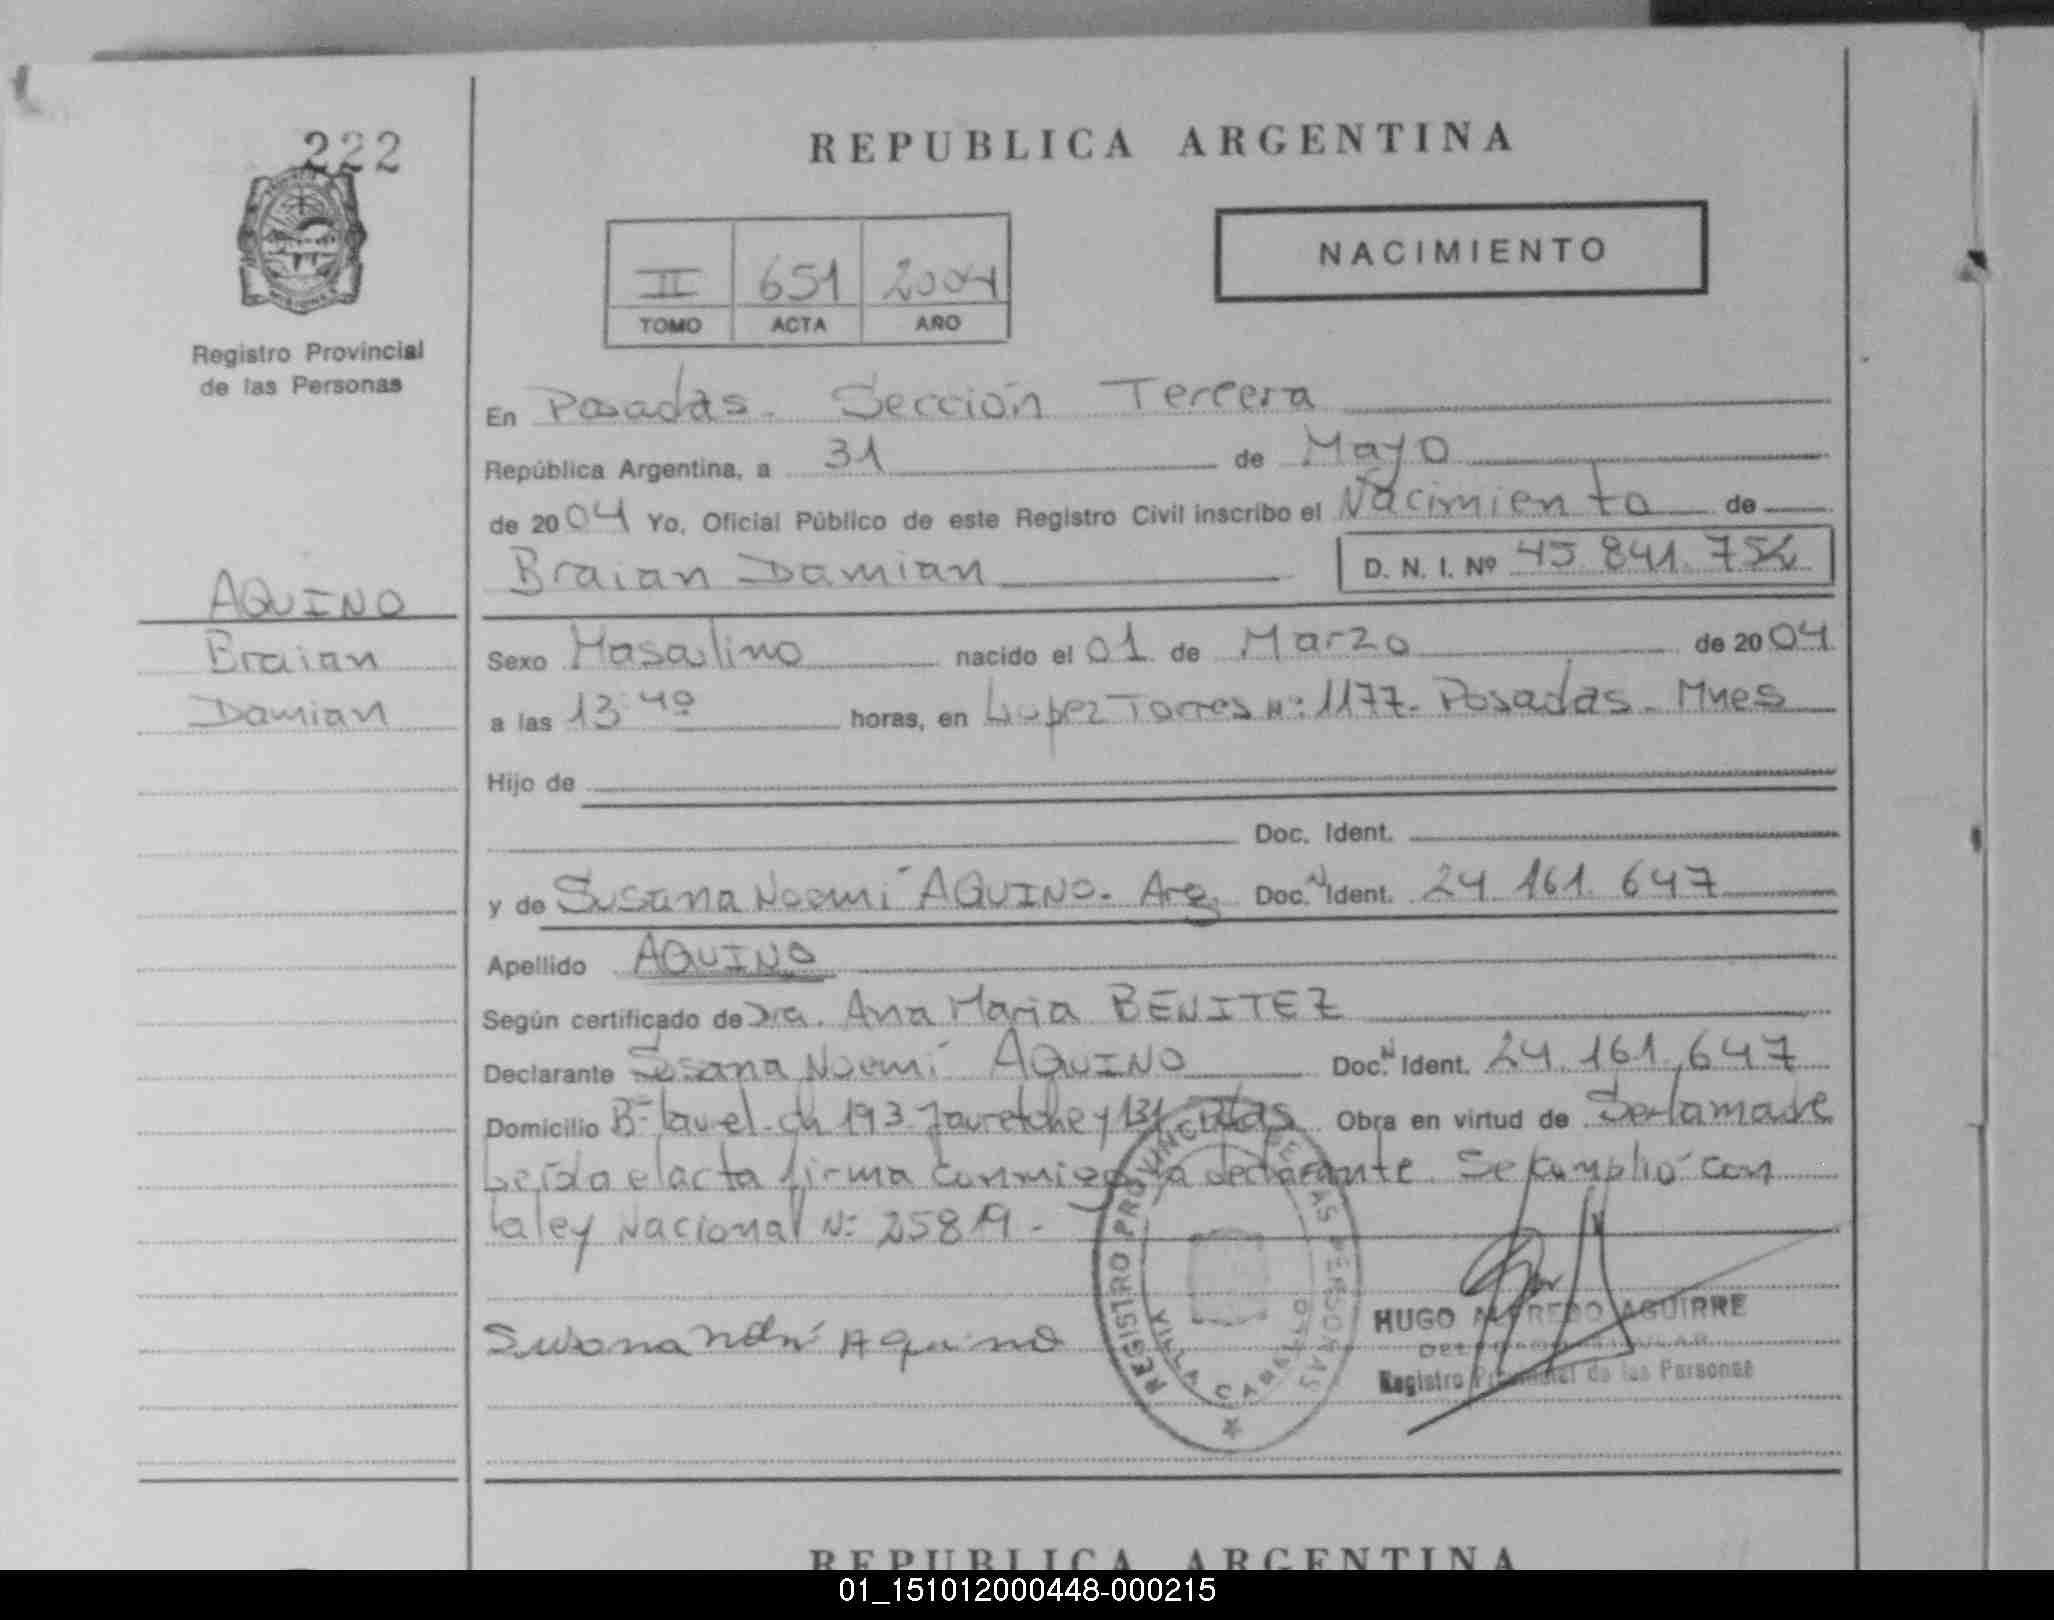 222
REPUBLICA ARGENTINA
NACIMIENTO
II 651 2004
TOMO ACTA AÑO
Registro Provincial
de las Personas
En Posadas. Sección Tercera
República Argentina, a 31 de Mayo
de 2004 Yo, Oficial Público de este Registro Civil inscribo el Nacimiento de
Braian Damian D. N. I. Nº 45.841.754
AQUINO
Braian
Damian
Sexo Masculino nacido el 01 de Marzo de 2004
a las 13:40 horas, en Lopez Torres Nº: 1177. Posadas. Mnes
Hijo de
Doc. Ident.
y de Susana Noemí AQUINO. Arg. Doc. N Ident. 24.161.647
Apellido AQUINO
Según certificado de Dra. Ana Maria BENITEZ
Declarante Susana Noemí AQUINO Doc. N Ident. 24.161.647
Domicilio Bº Laurel. ch 193. Jauretche y 131 Pdas. Obra en virtud de Ser la madre
Leída el acta firma conmigo la declarante. Se cumplió con
la ley Nacional Nº 25819.-
Susana Noemí Aquino
REGISTRO PROVINCIAL DE LAS PERSONAS
VILLA CABELLO
HUGO ALFREDO AGUIRRE
Registro Provincial de las Personas
REPUBLICA ARGENTINA
01_151012000448-000215